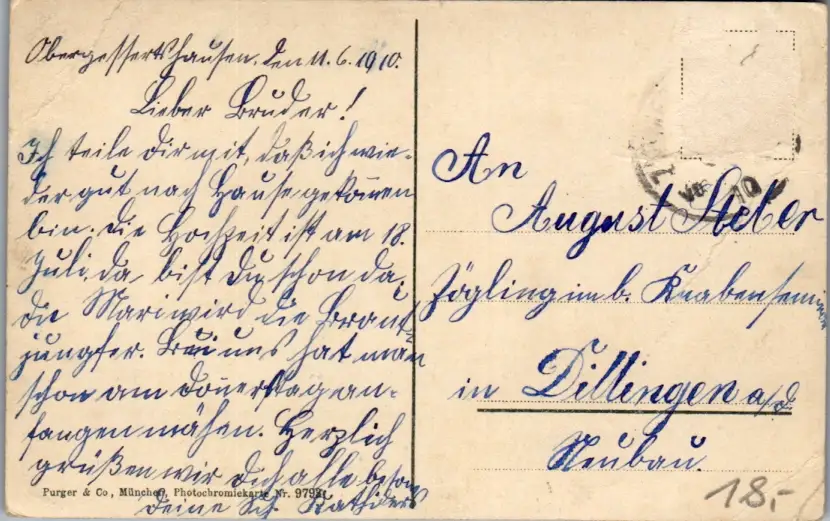 Obergessertshausen, den 11.6.1910.
Lieber Bruder!
Ich teile dir mit, daß ich wie-
der gut nach Hause gekom̄en
bin. Die Hochzeit ist am 18.
Juli. da bist Du schon da,
die Mari wird die Braut-
jungfer. Bei uns hat man
schon am Don̄erstag an-
fangen mähen. Herzlich
grüßen wir dich alle besond
deine Sch.
Purger & Co., München, Photochromiekarte Nr. 9793
An
August Steber
Zögling im b. Knabensemi
in Dillingen a/d
Neubau.
10
18.-